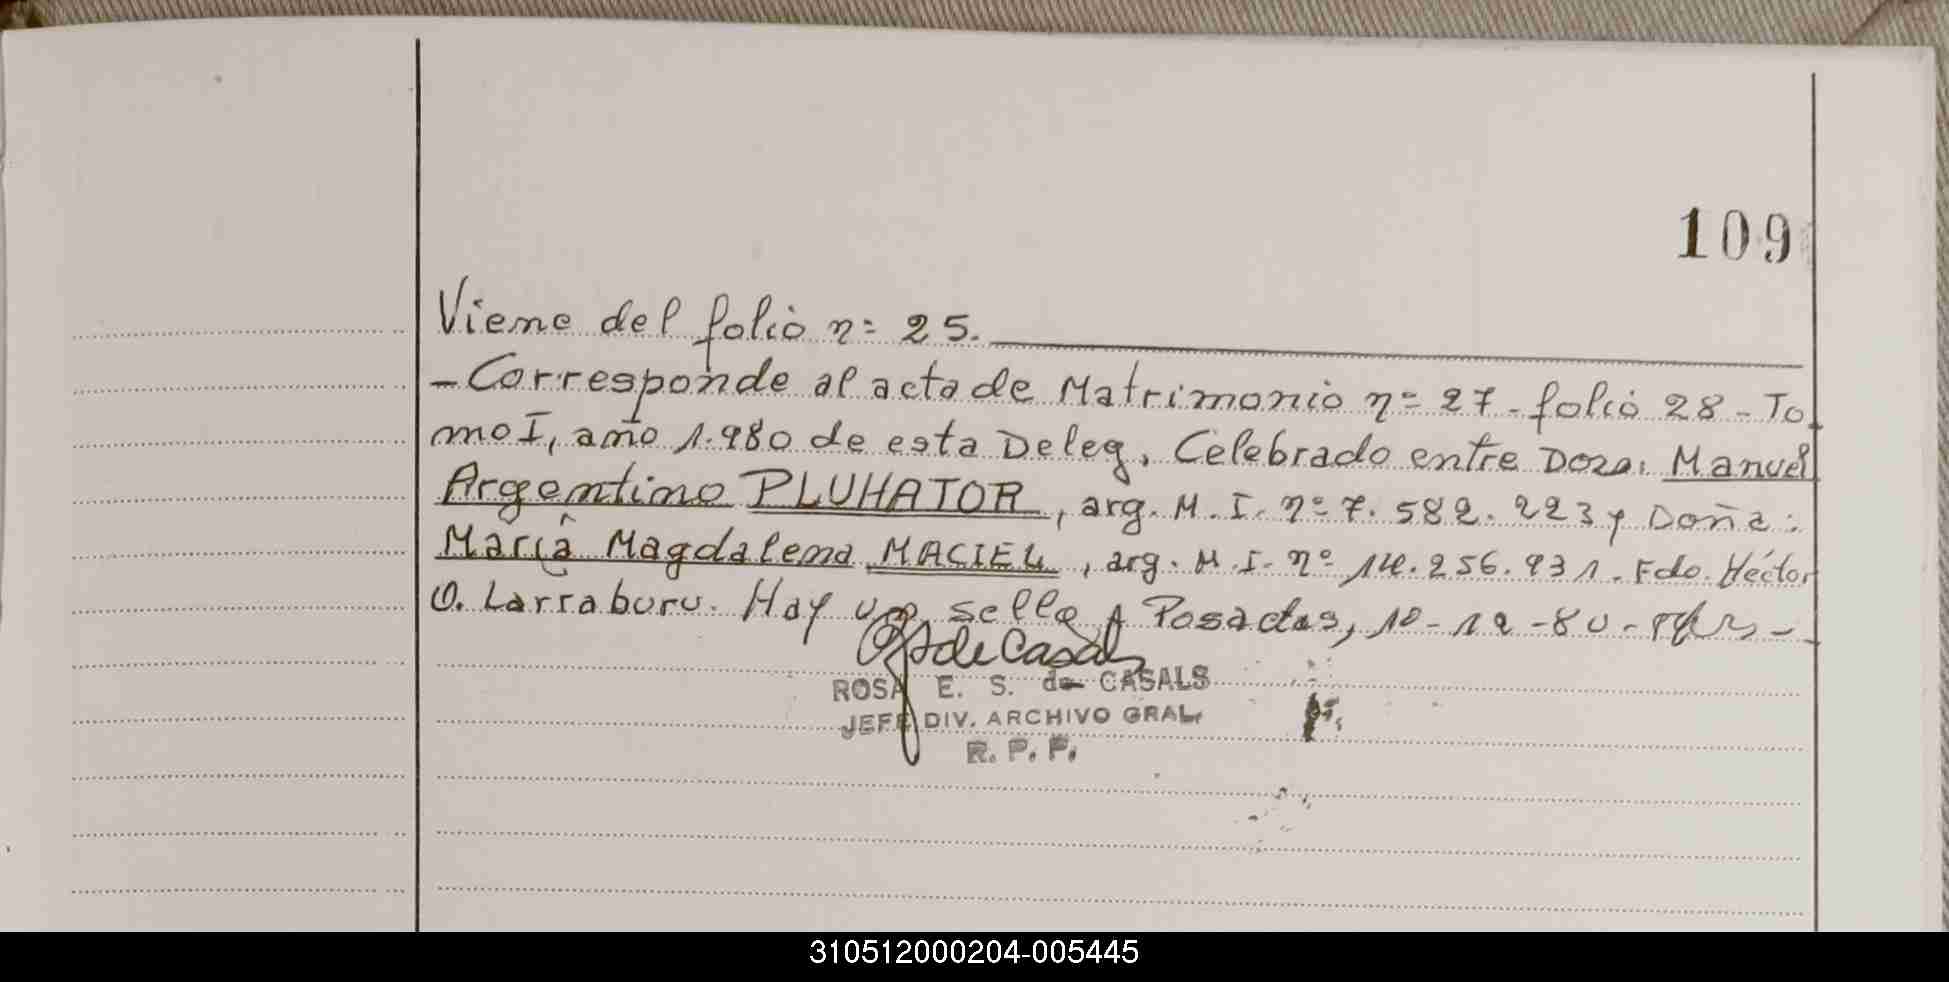 109
Viene del folio n= 25.
- Corresponde al acta de Matrimonio n= 27 - folio 28 - To
mo I, año 1.980 de esta Deleg. Celebrado entre Don: Manuel
Argentino PLUHATOR, arg. M. I. nº 7.582.223 y Doña:
María Magdalena MACIEL, arg. M. I. nº 14.256.931. Fdo. Héctor
O. Larraburu. Hay un sello. Posadas, 10-12-80-
ROSA E. S. de CASALS
JEFE DIV. ARCHIVO GRAL.
R. P. P.
310512000204-005445